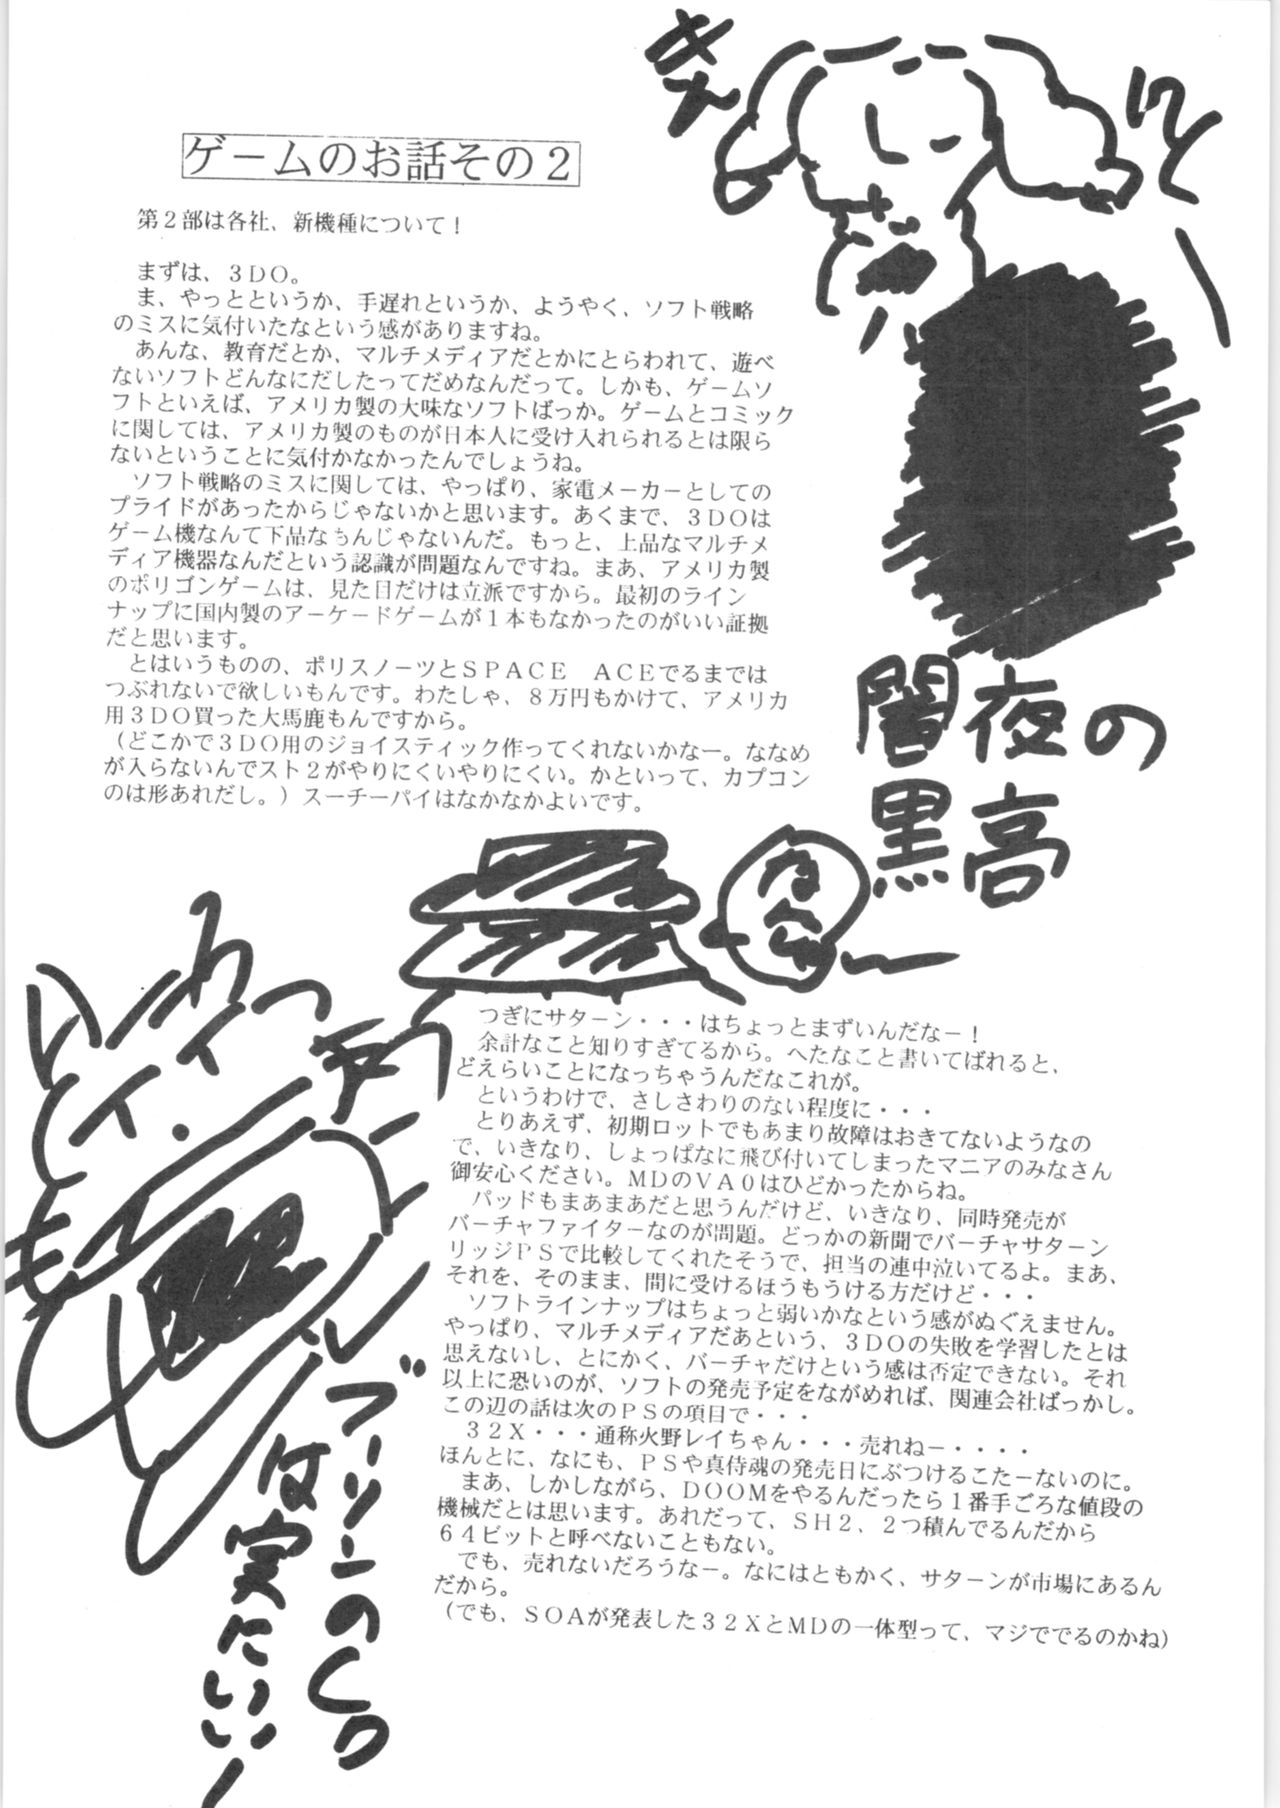 ゲームのお話その２
第２部は各社、新機種について！
まずは、３ＤＯ。
ま、やっとというか、手遅れというか、ようやく、ソフト戦略
のミスに気付いたなという感がありますね。
あんな、教育だとか、マルチメディアだとかにとらわれて、遊べ
ないソフトどんなにだしたってだめなんだって。しかも、ゲームソ
フトといえば、アメリカ製の大味なソフトばっか。ゲームとコミック
に関しては、アメリカ製のものが日本人に受け入れられるとは限ら
ないということに気付かなかったんでしょうね。
ソフト戦略のミスに関しては、やっぱり、家電メーカーとしての
プライドがあったからじゃないかと思います。あくまで、３ＤＯは
ゲーム機なんて下品なもんじゃないんだ。もっと、上品なマルチメ
ディア機器なんだという認識が問題なんですね。まあ、アメリカ製
のポリゴンゲームは、見た目だけは立派ですから。最初のライン
ナップに国内製のアーケードゲームが１本もなかったのがいい証拠
だと思います。
とはいうものの、ポリスノーツとＳＰＡＣＥ　ＡＣＥでるまでは
つぶれないで欲しいもんです。わたしゃ、８万円もかけて、アメリカ
用３ＤＯ買った大馬鹿もんですから。
（どこかで３ＤＯ用のジョイスティック作ってくれないかなー。ななめ
が入らないんでスト２がやりにくいやりにくい。かといって、カプコン
のは形あれだし。）スーチーパイはなかなかよいです。
闇夜の
黒高
つぎにサターン・・・はちょっとまずいんだなー！
余計なこと知りすぎてるから。へたなこと書いてばれると、
どえらいことになっちゃうんだなこれが。
というわけで、さしさわりのない程度に・・・
とりあえず、初期ロットでもあまり故障はおきてないようなの
で、いきなり、しょっぱなに飛び付いてしまったマニアのみなさん
御安心ください。ＭＤのＶＡ０はひどかったからね。
パッドもまあまあだと思うんだけど、いきなり、同時発売が
バーチャファイターなのが問題。どっかの新聞でバーチャサターン
リッジＰＳで比較してくれたそうで、担当の連中泣いてるよ。まあ、
それを、そのまま、間に受けるほうもうける方だけど・・・
ソフトラインナップはちょっと弱いかなという感がぬぐえません。
やっぱり、マルチメディアだあという、３ＤＯの失敗を学習したとは
思えないし、とにかく、バーチャだけという感は否定できない。それ
以上に恐いのが、ソフトの発売予定をながめれば、関連会社ばっかし。
この辺の話は次のＰＳの項目で・・・
３２Ｘ・・・通称火野レイちゃん・・・売れねー・・・・
ほんとに、なにも、ＰＳや真侍魂の発売日にぶつけるこたーないのに。
まあ、しかしながら、ＤＯＯＭをやるんだったら１番手ごろな値段の
機械だとは思います。あれだって、ＳＨ２、２つ積んでるんだから
６４ビットと呼べないこともない。
でも、売れないだろうなー。なにはともかく、サターンが市場にあるん
だから。
（でも、ＳＯＡが発表した３２ＸとＭＤの一体型って、マジででるのかね）